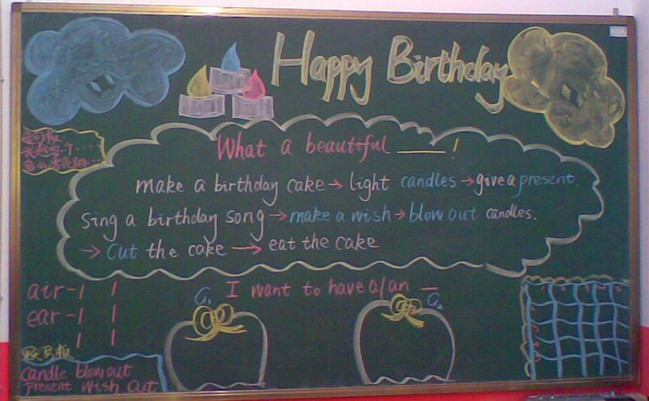 Happy Birthday
What a beautiful ____!
make a birthday cake → light candles → give a present.
Sing a birthday song → make a wish → blow out candles.
→ Cut the cake → eat the cake
I want to have a/an __
G1
G2
air -
ear -
candle blow out
present wish cut